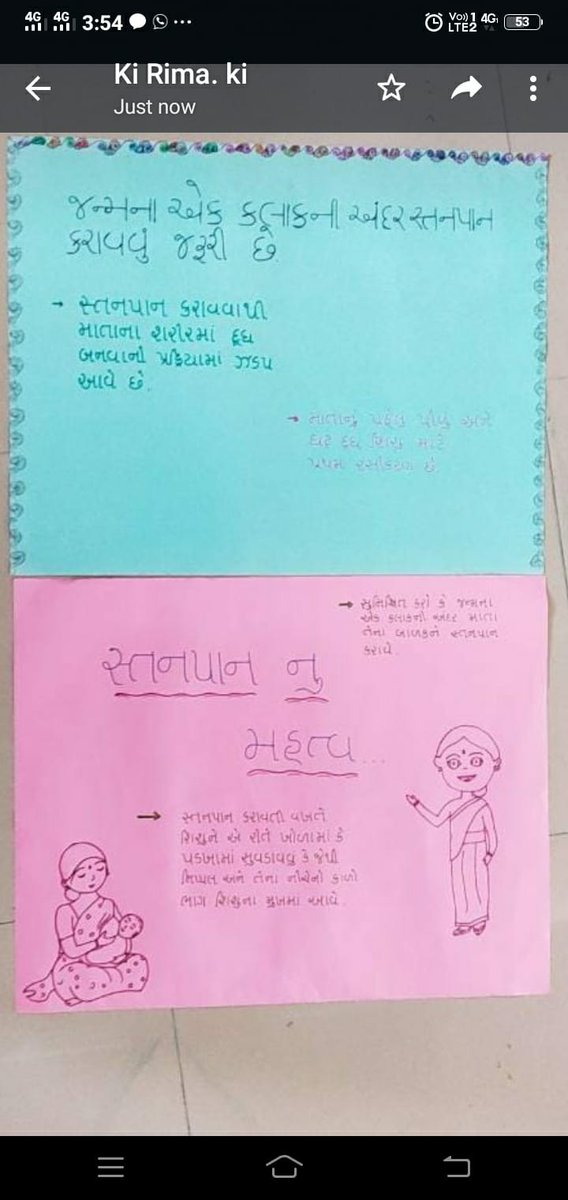 4G 4G 3:54
Vo) 1 4G
LTE2
53
Ki Rima. ki
Just now
જન્મના એક કલાકની અંદર સ્તનપાન
કરાવવું જરૂરી છે
→ સ્તનપાન કરાવવાથી
માતાના શરીરમાં દૂધ
બનવાની પ્રક્રિયામાં ઝડપ
આવે છે.
→ માતાનું પહેલુ પીળુ અને
ઘાટુ દૂધ શિશુ માટે
પ્રથમ રસીકરણ છે.
→ સુનિશ્ચિત કરો કે જન્મના
એક કલાકની અંદર માતા
તેના બાળકને સ્તનપાન
કરાવે.
સ્તનપાન નુ
મહત્વ...
→ સ્તનપાન કરાવતી વખતે
શિશુને એ રીતે ખોળામાં કે
પડખામાં સુવડાવવુ કે જેથી
નિપ્પલ અને તેના નીચેનો કાળો
ભાગ શિશુના મુખમાં આવે.